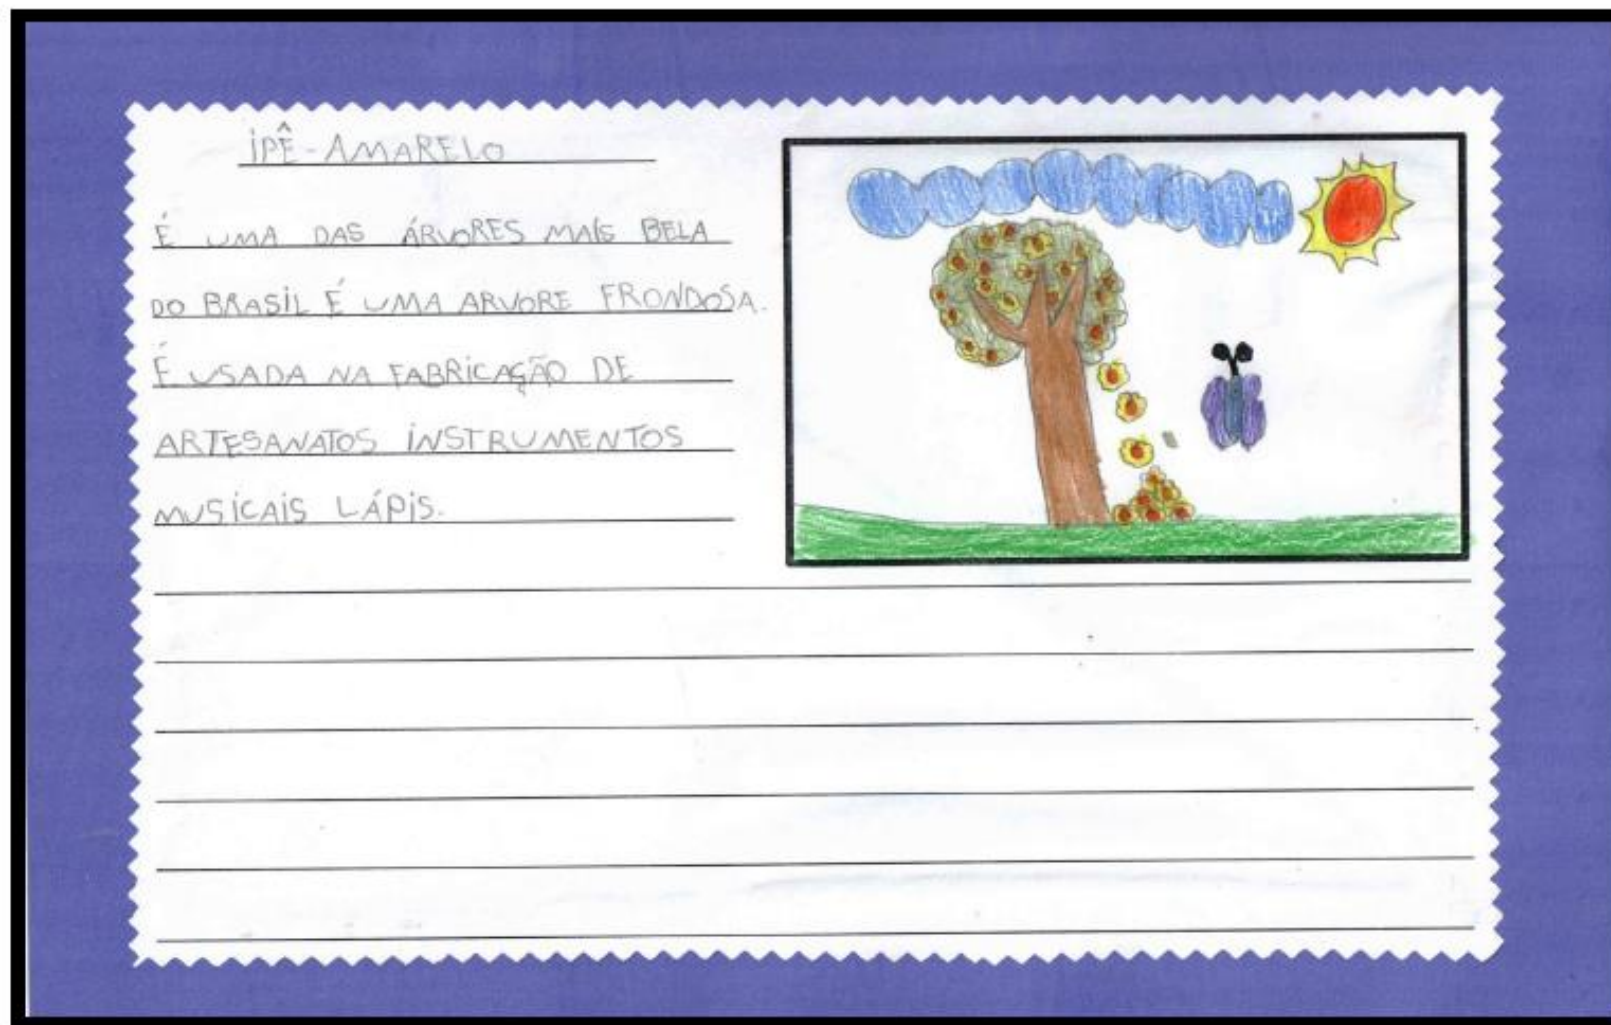 IPÊ-AMARELO
É UMA DAS ÁRVORES MAIS BELA
DO BRASIL É UMA ARVORE FRONDOSA.
É USADA NA FABRICAÇÃO DE
ARTESANATOS INSTRUMENTOS
MUSICAIS LÁPIS.